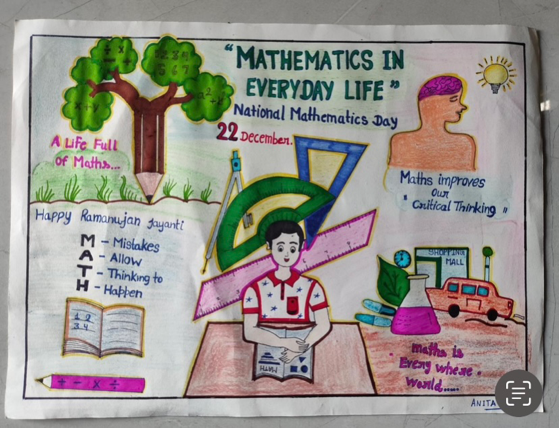 "MATHEMATICS IN
EVERYDAY LIFE"
National Mathematics Day
22 December.
A Life Full
of Maths...
Maths improves
our
"Critical Thinking"
Happy Ramanujan Jayanti
M - Mistakes
A - Allow
T - Thinking to
H - Happen
1 2
3 4
+ - × ÷
MATH
SHOPPING
MALL
Maths is
Every where
World.....
ANITA